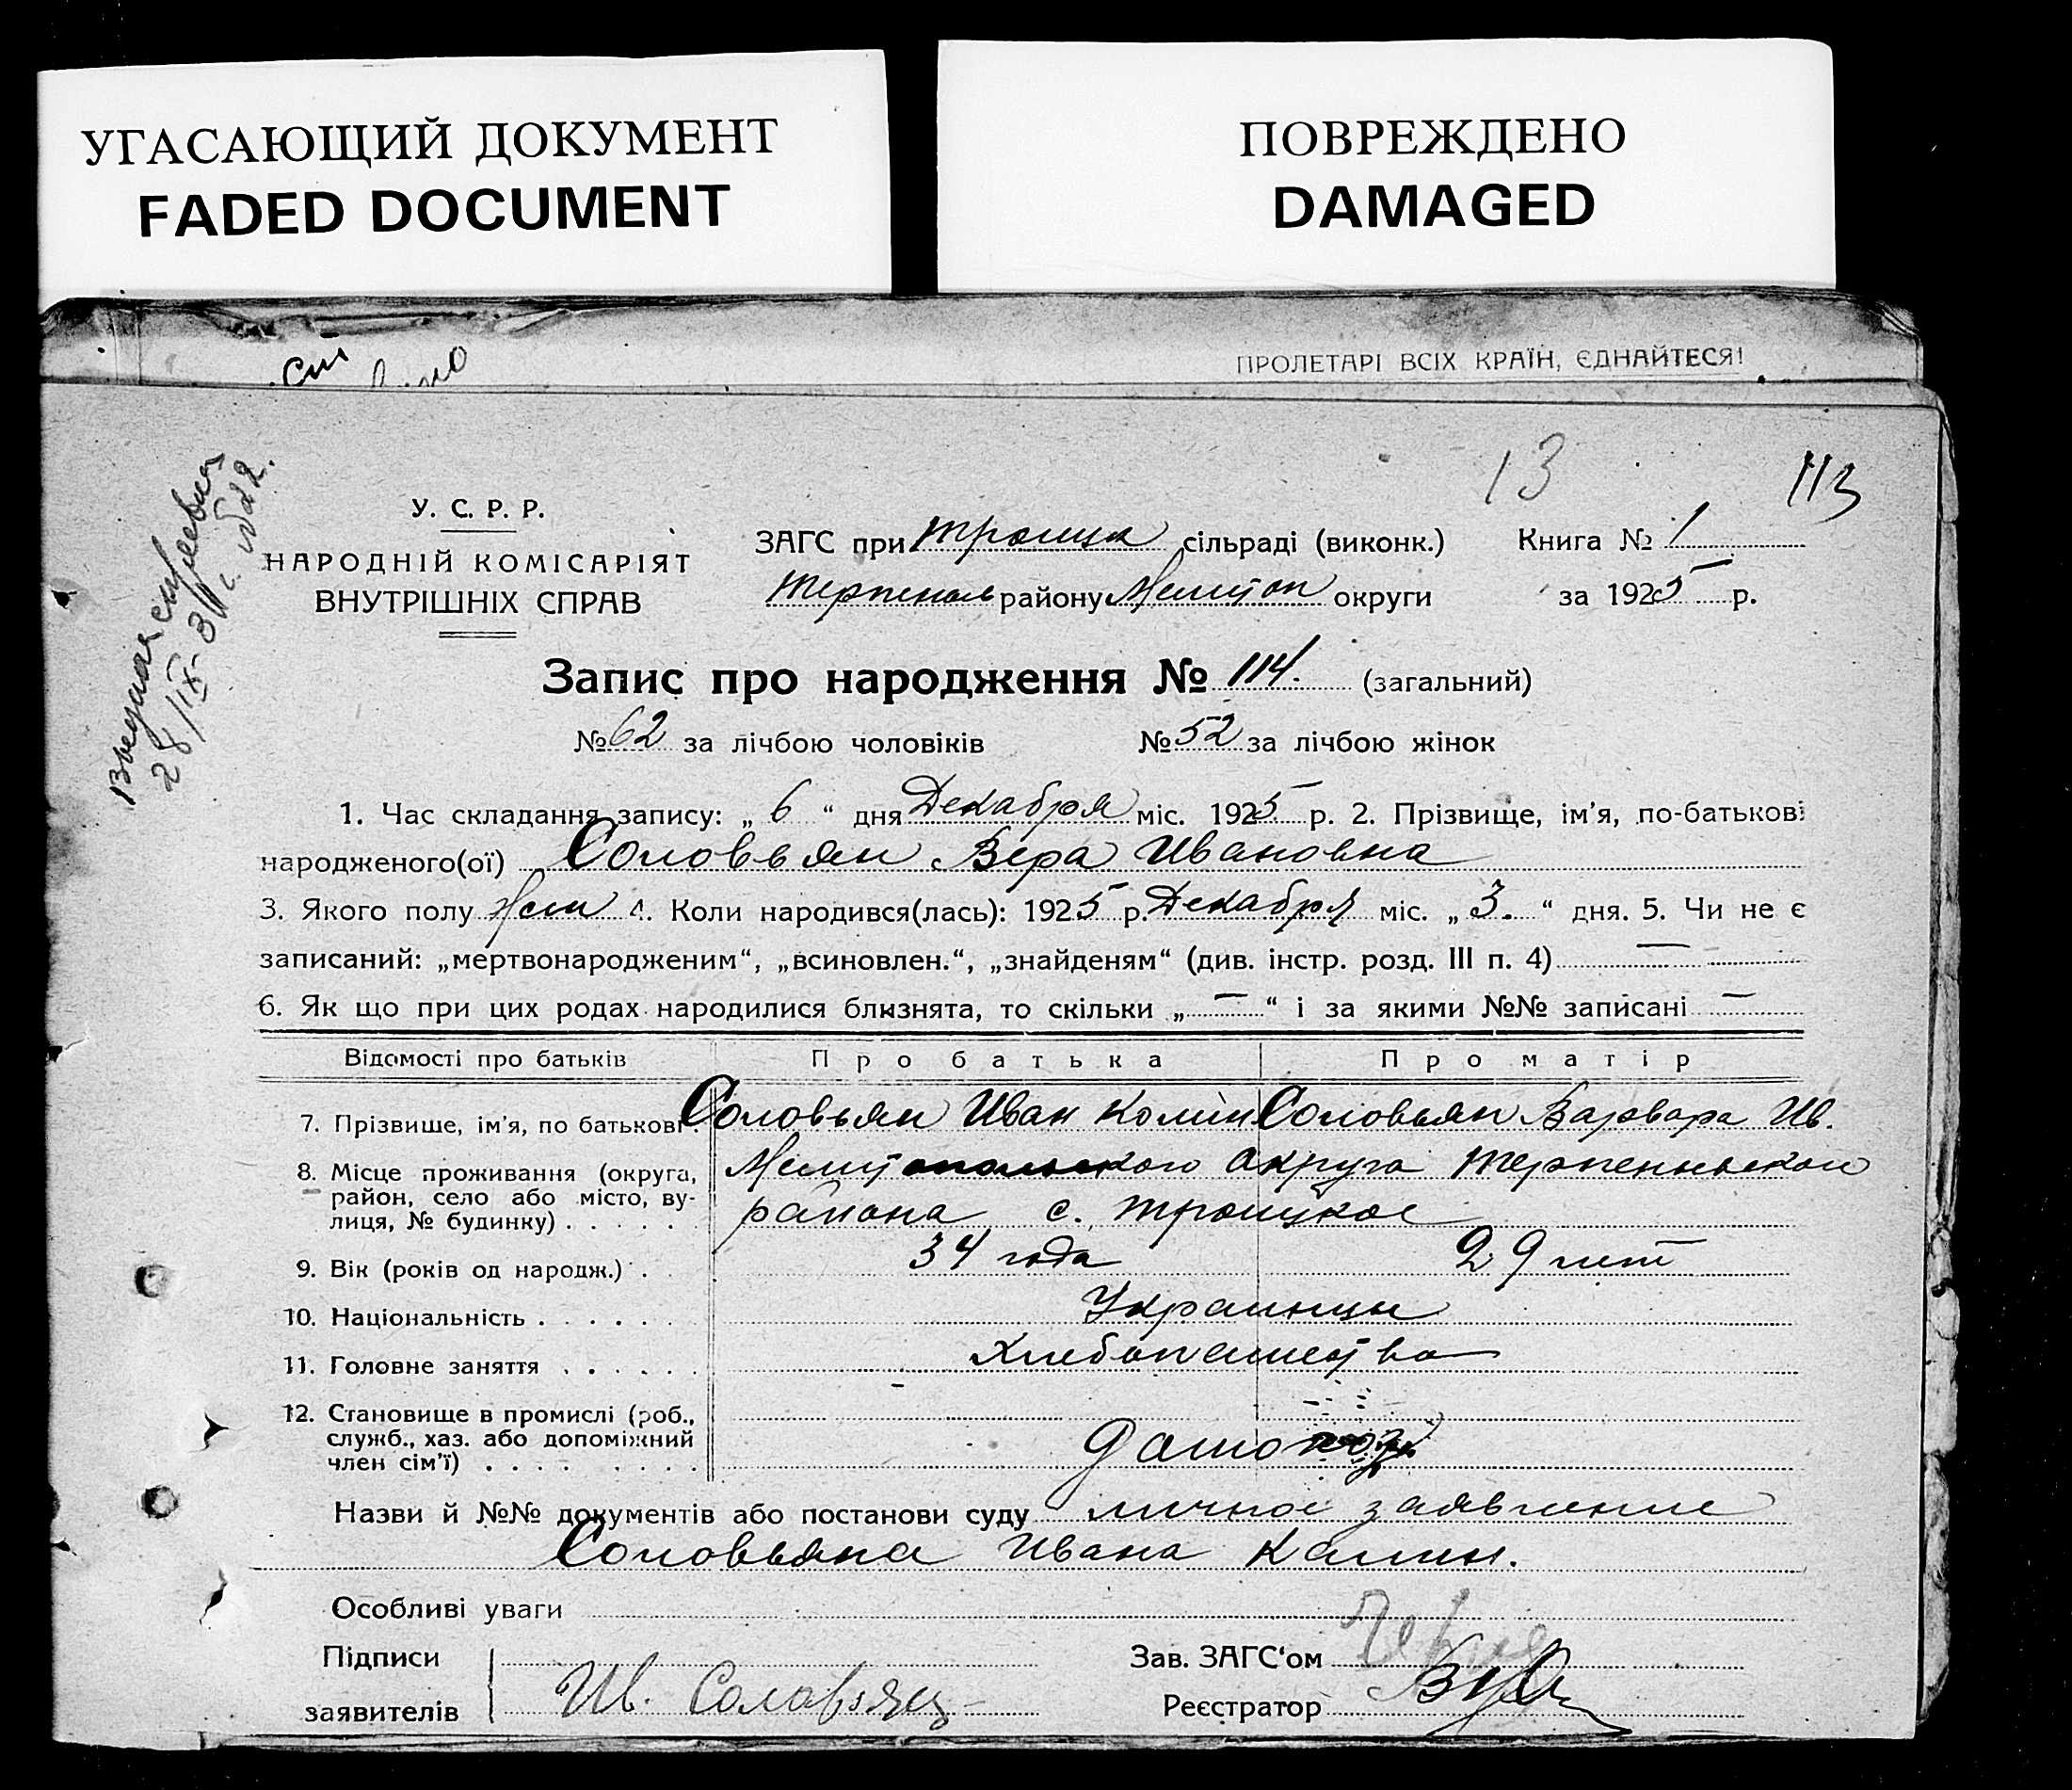 УГАСАЮЩИЙ ДОКУМЕНТ
FADED DOCUMENT
ПОВРЕЖДЕНО
DAMAGED
ПРОЛЕТАРІ ВСІХ КРАЇН, ЄДНАЙТЕСЯ!
13
113
28/IX
У. С. Р. Р.
НАРОДНІЙ КОМІСАРІЯТ
ВНУТРІШНІХ СПРАВ
ЗАГС при Троицк сільраді (виконк.) Книга № 1
Терпеньев району Мелитоп округи за 1925 р.
Запис про народження № 114. (загальний)
№ 62 за лічбою чоловіків № 52 за лічбою жінок
1. Час складання запису: „ 6 “ дня Декабря міс. 1925 р. 2. Прізвище, ім’я, по-батькові
народженого(ої) Соловьян Вера Ивановна
3. Якого полу жен 4. Коли народився(лась): 1925 р. Декабря міс. „ 3. “ дня. 5. Чи не є
записаний: „мертвонародженим“, „всиновлен.“, „знайденям“ (див. інстр. розд. III п. 4) —
6. Як що при цих родах народилися близнята, то скільки „ — “ і за якими №№ записані —
Відомості про батьків Про батька Про матір
7. Прізвище, ім’я, по батькові. Соловьян Иван Калин Соловьян Варвара Ив.
8. Місце проживання (округа, район, село або місто, вулиця, № будинку) Мелитопольского округа Терпеньевского
района с. Троицкое
9. Вік (років од народж.) 34 года 29 лет
10. Національність Украинцы
11. Головне заняття Хлебопашество
12. Становище в промислі (роб.,
служб., хаз. або допоміжний
член сім’ї)
Назви й №№ документів або постанови суду личное заявление
Соловьяна Ивана Калин.
Особливі уваги
Підписи Зав. ЗАГС‘ом
заявителів Ив. Реєстратор